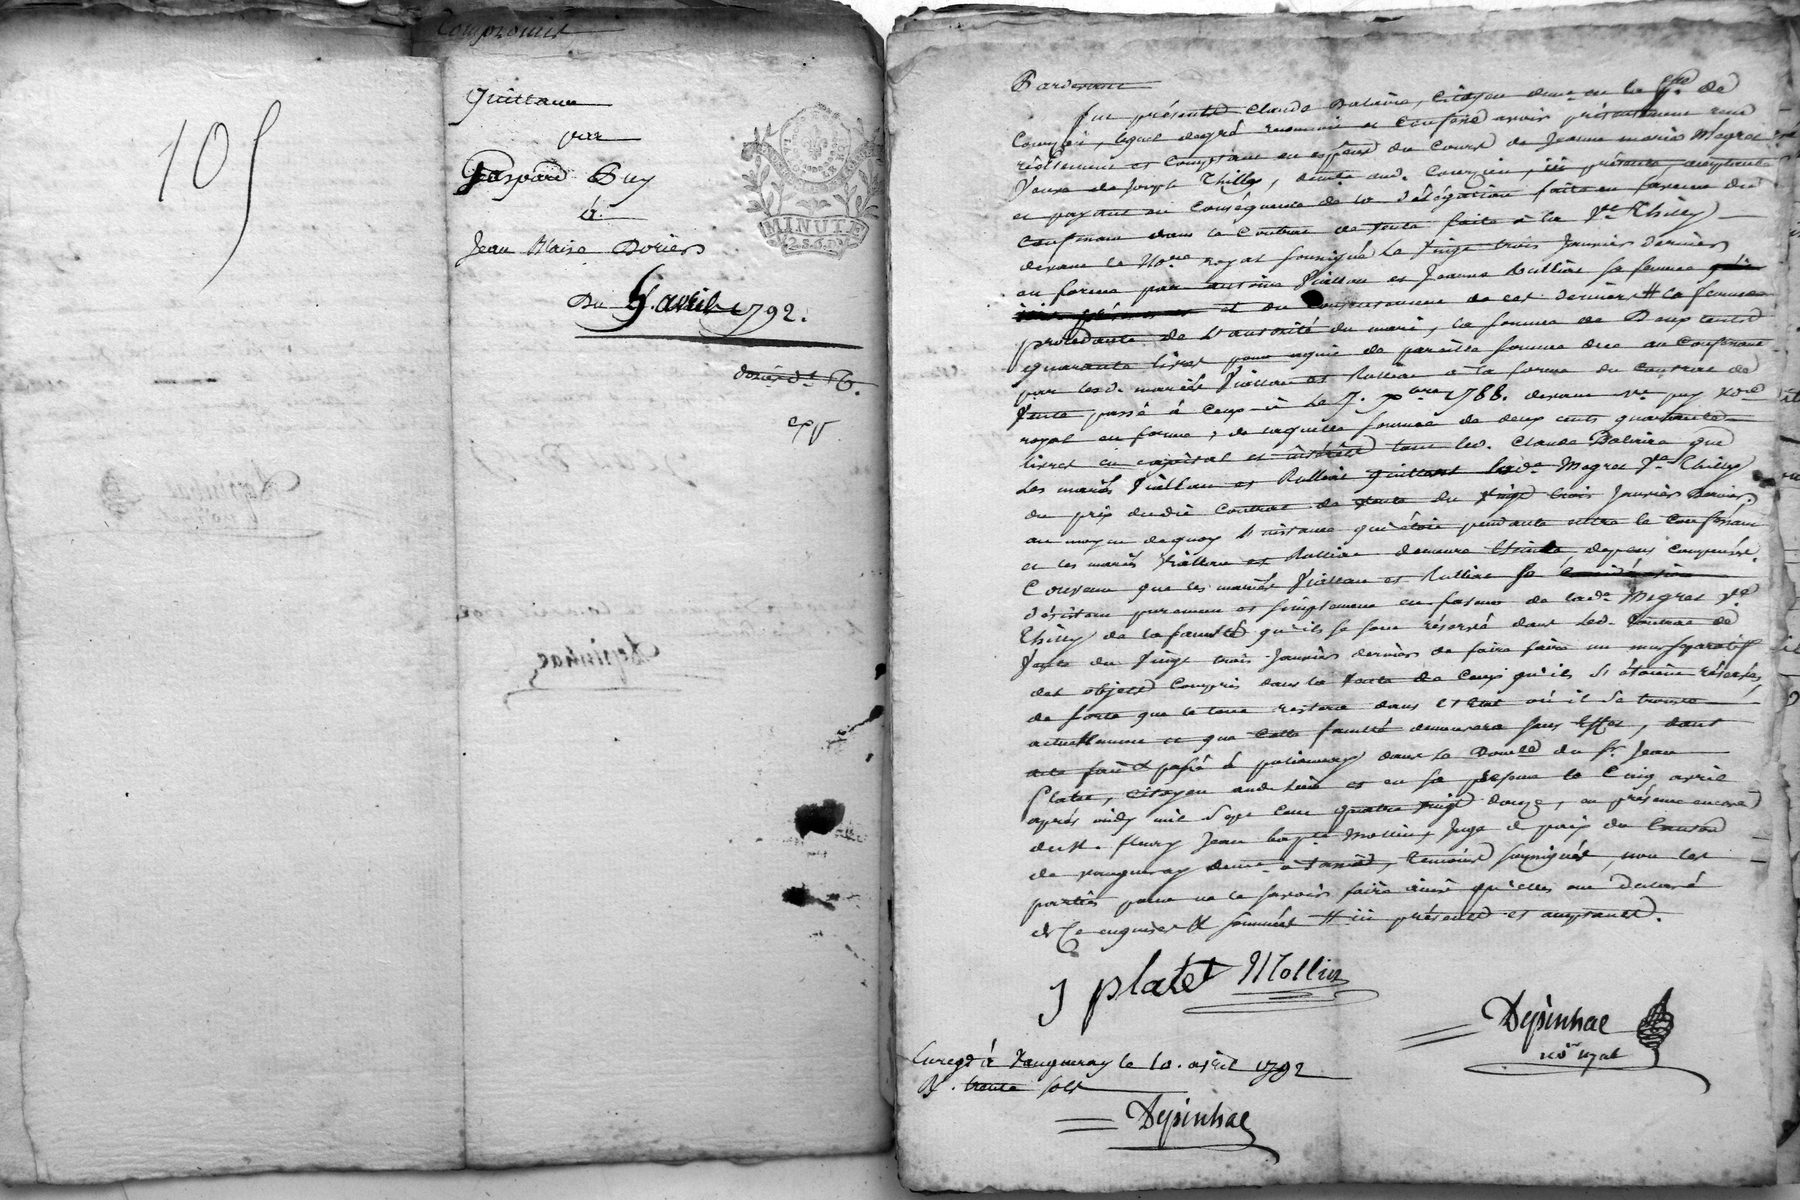 Compromis
105
Quittance
par
Gaspard Puy
à
Jean Blaise Dorier
Du 5 avril 1792.
MINUTE
2.S.6.D
exp
Pardevant
fut présent Claude Balaire, citoyen demt en la de
Courzieu, lequel de gré reconnoit et confesse avoir présentement reçu
réellement et comptant en espèces du cours de Jeanne marie Megret
Veuve de Joseph Thilly, demte aud. Courzieu, ici présente acceptante
et payant en conséquence de la délégation faite en faveur du
confessant dans le contrat de vente faite à la Ve Thilly
devant le Nore royal soussigné le vingt trois Janvier dernier
en forme par antoine Viallon et Jeanne Rullias sa femme
et du consentement de ces derniers # la femme
procédante de l'autorité du mari, la somme de Deux cents
quarante livres pour pareille somme due au confessant
par lesd. mariés Viallon et Rullias à la forme du contrat de
Vente passé à le 7. xbre 1788. devant Me puy Nore
royal en forme, de laquelle somme de deux cents quarante
livres en capital et intérêts tant led. Claude Balaire que
les mariés Viallon et Rullias quittent lade Megret Ve Thilly
du prix dudit contrat de vente du vingt trois Janvier dernier
au moyen de quoy l'instance qui étoit pendante entre le confessant
et les mariés Viallon et Rullias demeure éteinte, depens compensés.
Convenu que les mariés Viallon et Rullias se
désistent purement et simplement en faveur de lade Megret Ve
Thilly de la faculté qu'ils se sont réservé dans led. contrat de
Vente du vingt trois Janvier dernier de faire faire un mur séparatif
des objets compris dans la vente de ceux qu'ils s'étoient réservés,
de sorte que le tout restera dans l'état où il se trouve
actuellement et que cette faculté demeurera sans effet, dont
acte fait et passé à dans le Domicile du Sr. Jean
Platet, citoyen aud. lieu et en sa présence le cinq avril
après midy mil sept cent quatre vingt douze, en présence encore
de Mr. fleury Jean bapte Mollin, Juge de paix du Canton
de vaugneray demt à, temoins soussignés, non les
parties pour ne le savoir faire ainsi qu'elles ont déclaré
de ce enquises & sommées # ici présents et acceptants.
J platet Mollin
Depinhac
nore royal
Enregé à Vaugneray le 10. avril 1792
R. trente sols
Depinhac